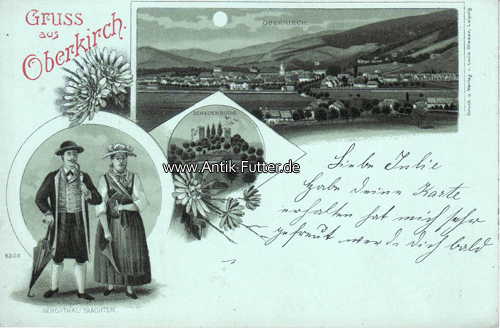 Gruss
aus
Oberkirch.
OBERKIRCH.
SCHAUENBURG.
www.Antik-Futter.de
Liebe Julie
Habe deine Karte
erhalten hat mich sehr
gefreut werde dich bald
RENCHTHAL-TRACHTEN.
Druck u. Verlag v. Louis Glaser, Leipzig.